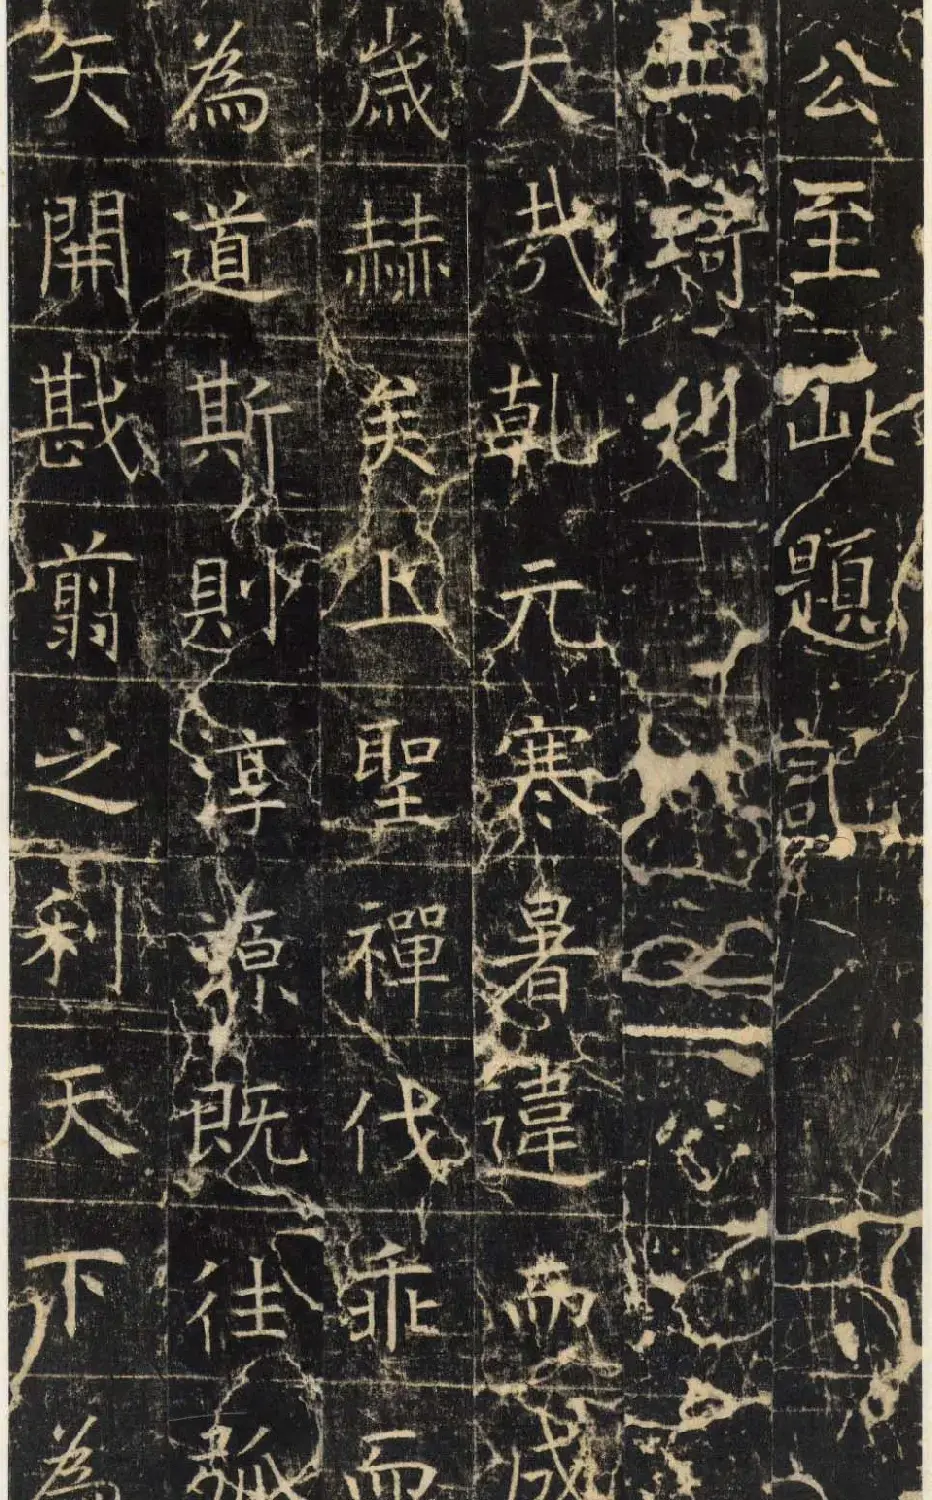 公至此題記
琦
大哉乾元寒暑違而成
歲赫矣上聖禪代乖而
為道斯則淳源既往弧
矢開戡翦之利天下為